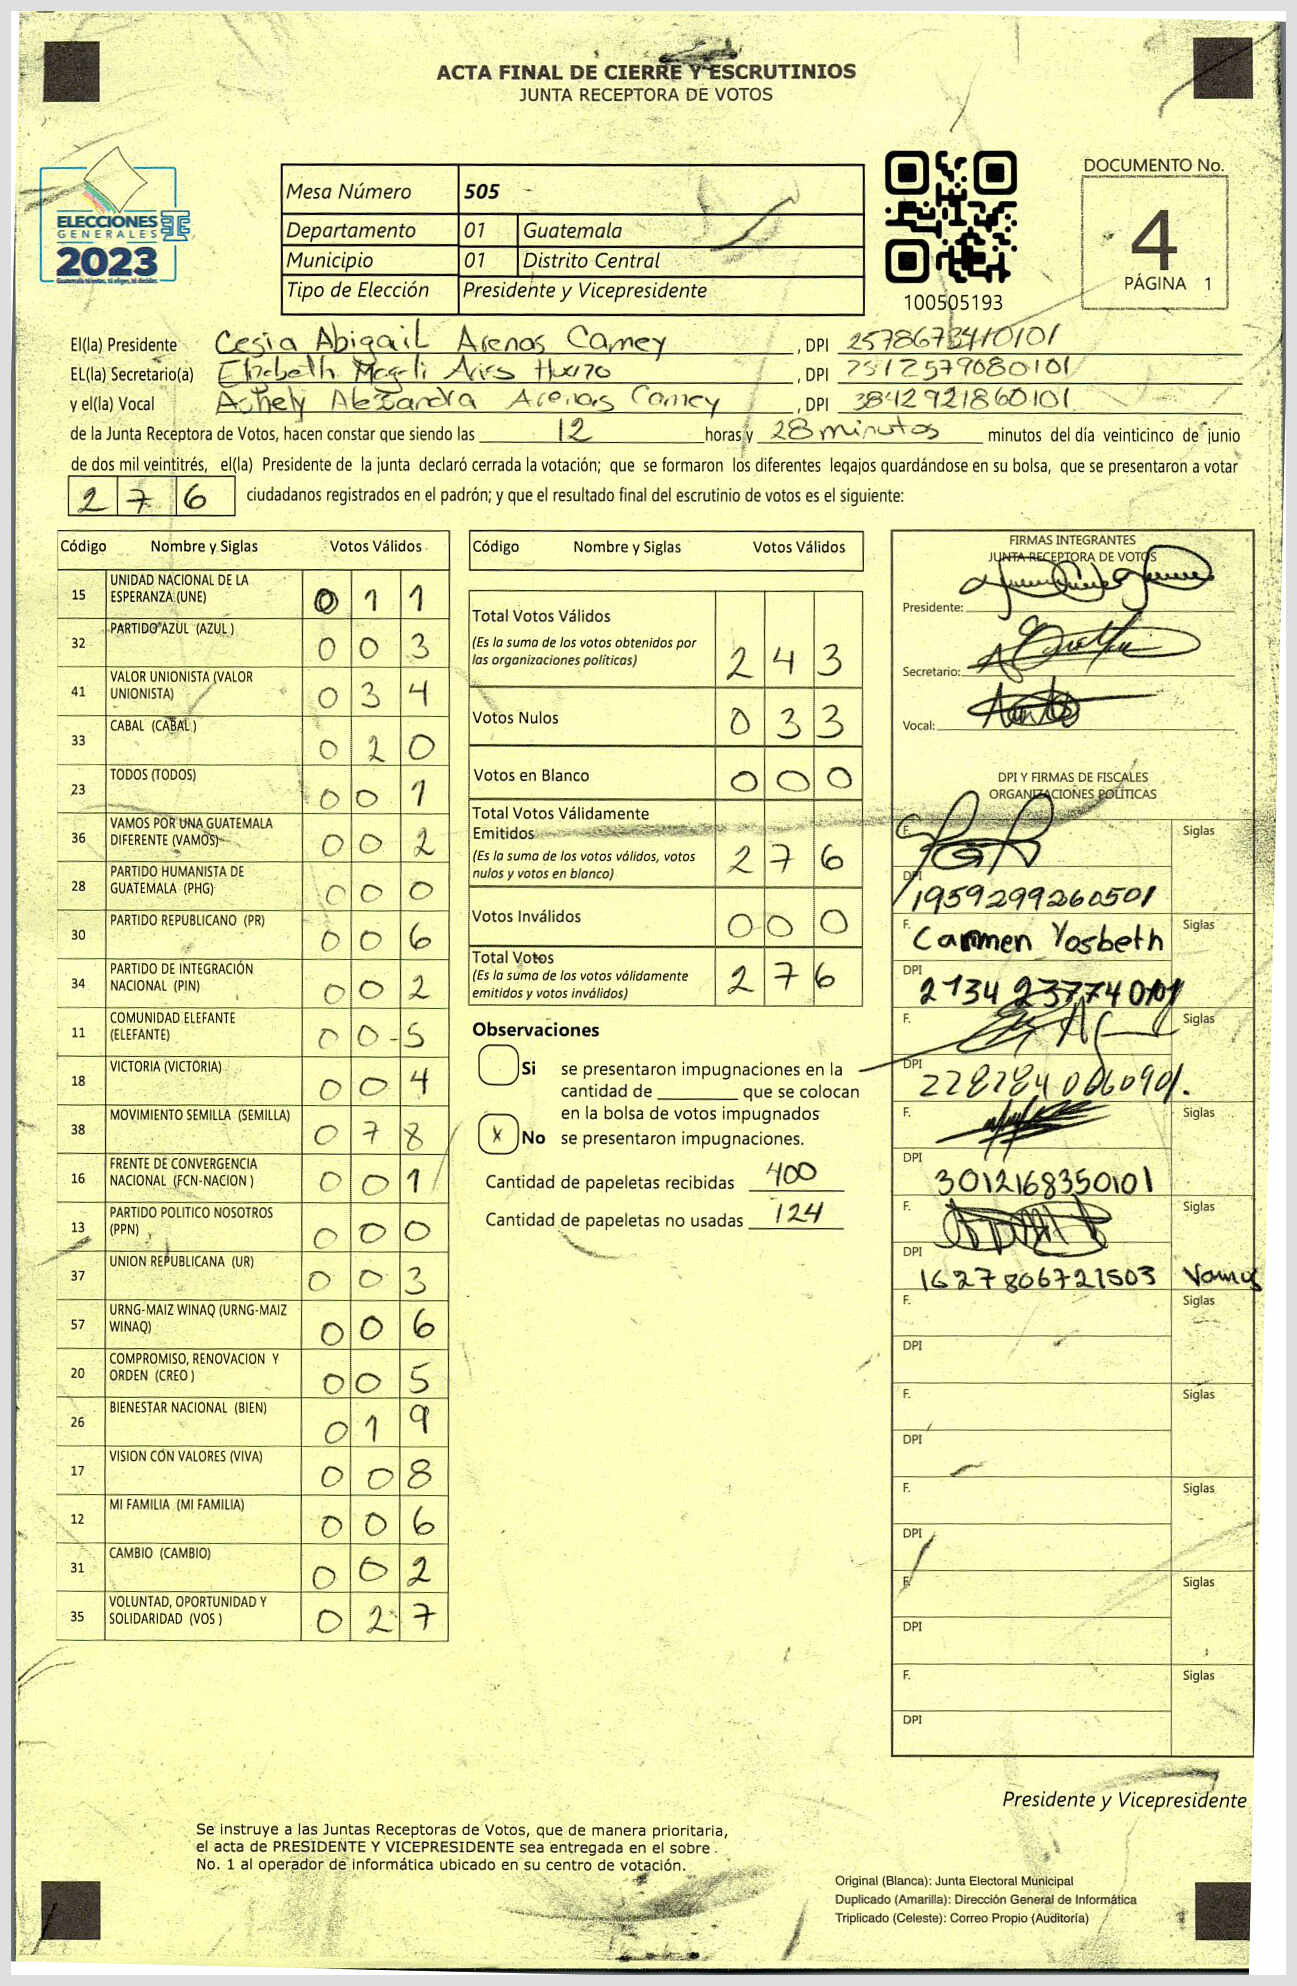 ACTA FINAL DE CIERRE Y ESCRUTINIOS
JUNTA RECEPTORA DE VOTOS
ELECCIONES
GENERALES
2023
Mesa Número 505
Departamento 01 Guatemala
Municipio 01 Distrito Central
Tipo de Elección Presidente y Vicepresidente
100505193
DOCUMENTO No.
4
PÁGINA 1
El(la) Presidente Cesia Abigail Arenas Camey, DPI 2578673410101
EL(la) Secretario(a) Elizabeth Magali, DPI
y el(la) Vocal Ashely Alexandra Arenas Camey, DPI 3842921860101
de la Junta Receptora de Votos, hacen constar que siendo las 12 horas y 28 minutos minutos del día veinticinco de junio
de dos mil veintitrés, el(la) Presidente de la junta declaró cerrada la votación; que se formaron los diferentes legajos guardándose en su bolsa, que se presentaron a votar
276 ciudadanos registrados en el padrón; y que el resultado final del escrutinio de votos es el siguiente:
Código Nombre y Siglas Votos Válidos
15 UNIDAD NACIONAL DE LA ESPERANZA (UNE) 011
32 PARTIDO AZUL (AZUL ) 003
41 VALOR UNIONISTA (VALOR UNIONISTA) 034
33 CABAL (CABAL ) 020
23 TODOS (TODOS) 001
36 VAMOS POR UNA GUATEMALA DIFERENTE (VAMOS) 002
28 PARTIDO HUMANISTA DE GUATEMALA (PHG) 000
30 PARTIDO REPUBLICANO (PR) 006
34 PARTIDO DE INTEGRACIÓN NACIONAL (PIN) 002
11 COMUNIDAD ELEFANTE (ELEFANTE) 00-5
18 VICTORIA (VICTORIA) 004
38 MOVIMIENTO SEMILLA (SEMILLA) 078
16 FRENTE DE CONVERGENCIA NACIONAL (FCN-NACION ) 001
13 PARTIDO POLITICO NOSOTROS (PPN) 000
37 UNION REPUBLICANA (UR) 003
57 URNG-MAIZ WINAQ (URNG-MAIZ WINAQ) 006
20 COMPROMISO, RENOVACION Y ORDEN (CREO ) 005
26 BIENESTAR NACIONAL (BIEN) 019
17 VISION CON VALORES (VIVA) 008
12 MI FAMILIA (MI FAMILIA) 006
31 CAMBIO (CAMBIO) 002
35 VOLUNTAD, OPORTUNIDAD Y SOLIDARIDAD (VOS ) 027
Código Nombre y Siglas Votos Válidos
Total Votos Válidos 243
(Es la suma de los votos obtenidos por
las organizaciones políticas)
Votos Nulos 033
Votos en Blanco 000
Total Votos Válidamente
Emitidos 276
(Es la suma de los votos válidos, votos
nulos y votos en blanco)
Votos Inválidos 000
Total Votos 276
(Es la suma de los votos válidamente
emitidos y votos inválidos)
Observaciones
Si se presentaron impugnaciones en la
cantidad de ________ que se colocan
en la bolsa de votos impugnados
x No se presentaron impugnaciones.
Cantidad de papeletas recibidas 400
Cantidad de papeletas no usadas 124
FIRMAS INTEGRANTES
JUNTA RECEPTORA DE VOTOS
Presidente:
Secretario:
Vocal:
DPI Y FIRMAS DE FISCALES
ORGANIZACIONES POLÍTICAS
F. Siglas
DPI 1959299260501
F. Carmen Yosbeth Siglas
DPI
F. Siglas
DPI
F. Siglas
DPI 3012168350101
F. Siglas
DPI 1627806721503 Vamos
F. Siglas
DPI
F. Siglas
DPI
F. Siglas
DPI
F. Siglas
DPI
F. Siglas
DPI
Presidente y Vicepresidente
Se instruye a las Juntas Receptoras de Votos, que de manera prioritaria,
el acta de PRESIDENTE Y VICEPRESIDENTE sea entregada en el sobre
No. 1 al operador de informática ubicado en su centro de votación.
Original (Blanca): Junta Electoral Municipal
Duplicado (Amarilla): Dirección General de Informática
Triplicado (Celeste): Correo Propio (Auditoría)